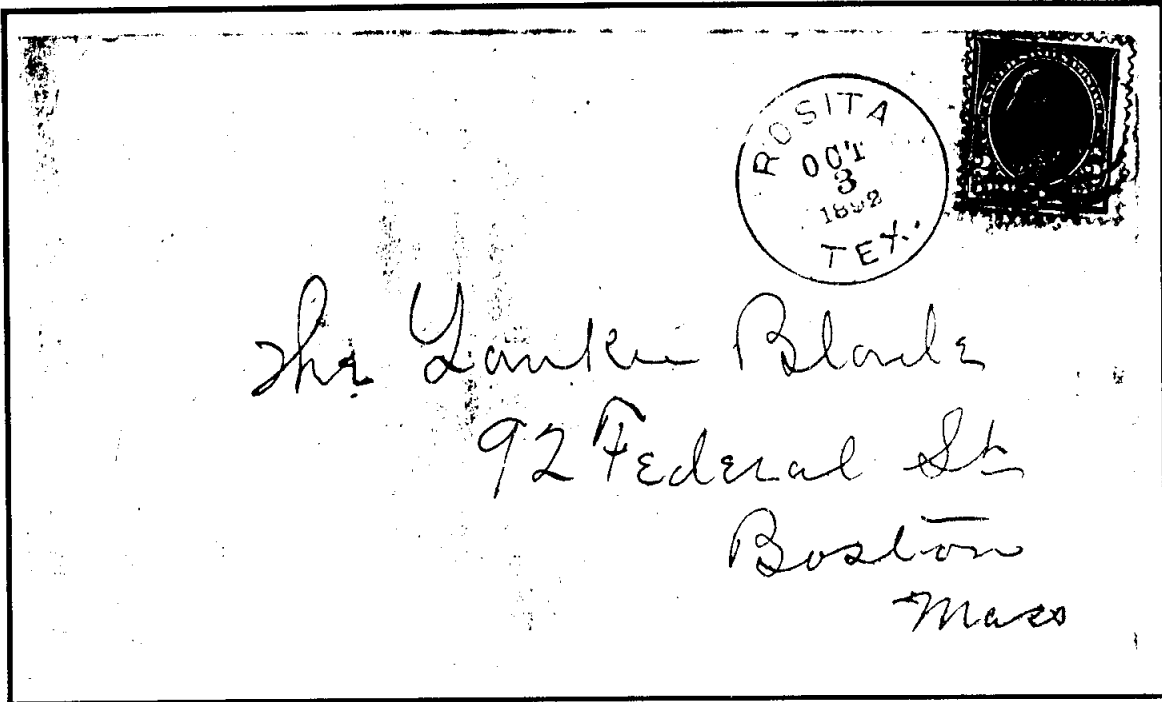 ROSITA
OCT
3
1892
TEX.
The Yankee Blade
92 Federal St
Boston
Mass